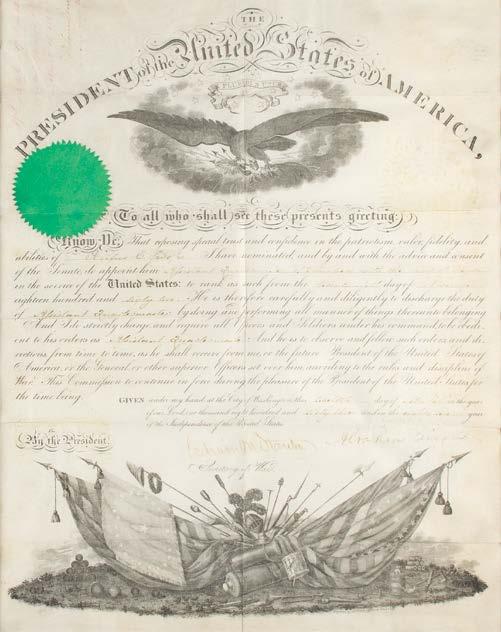 THE
PRESIDENT of the United States of AMERICA,
E PLURIBUS UNUM
To all who shall see these presents greeting:
Know Ye, That reposing special trust and confidence in the patriotism, valor, fidelity, and
abilities of I have nominated, and by and with the advice and consent
of the Senate, do appoint him Assistant
in the service of the United States: to rank as such from the day of
eighteen hundred and sixty He is therefore carefully and diligently to discharge the duty
of Assistant Quartermaster by doing and performing all manner of things thereunto belonging.
And I do strictly charge and require all Officers and Soldiers under his command to be obedi-
ent to his orders as Assistant Quartermaster And he is to observe and follow such orders and di-
rections from time to time, as he shall receive from me, or the future President of the United States of
America, or the General or other superior Officers set over him, according to the rules and discipline of
War. This Commission to continue in force during the pleasure of the President of the United States for
the time being.
GIVEN under my hand at the City of Washington this day of in the year
of our Lord one thousand eight hundred and sixty and in the year
of the Independence of the United States.
By the President
Edwin M Stanton
Abraham Lincoln
Secretary of War.